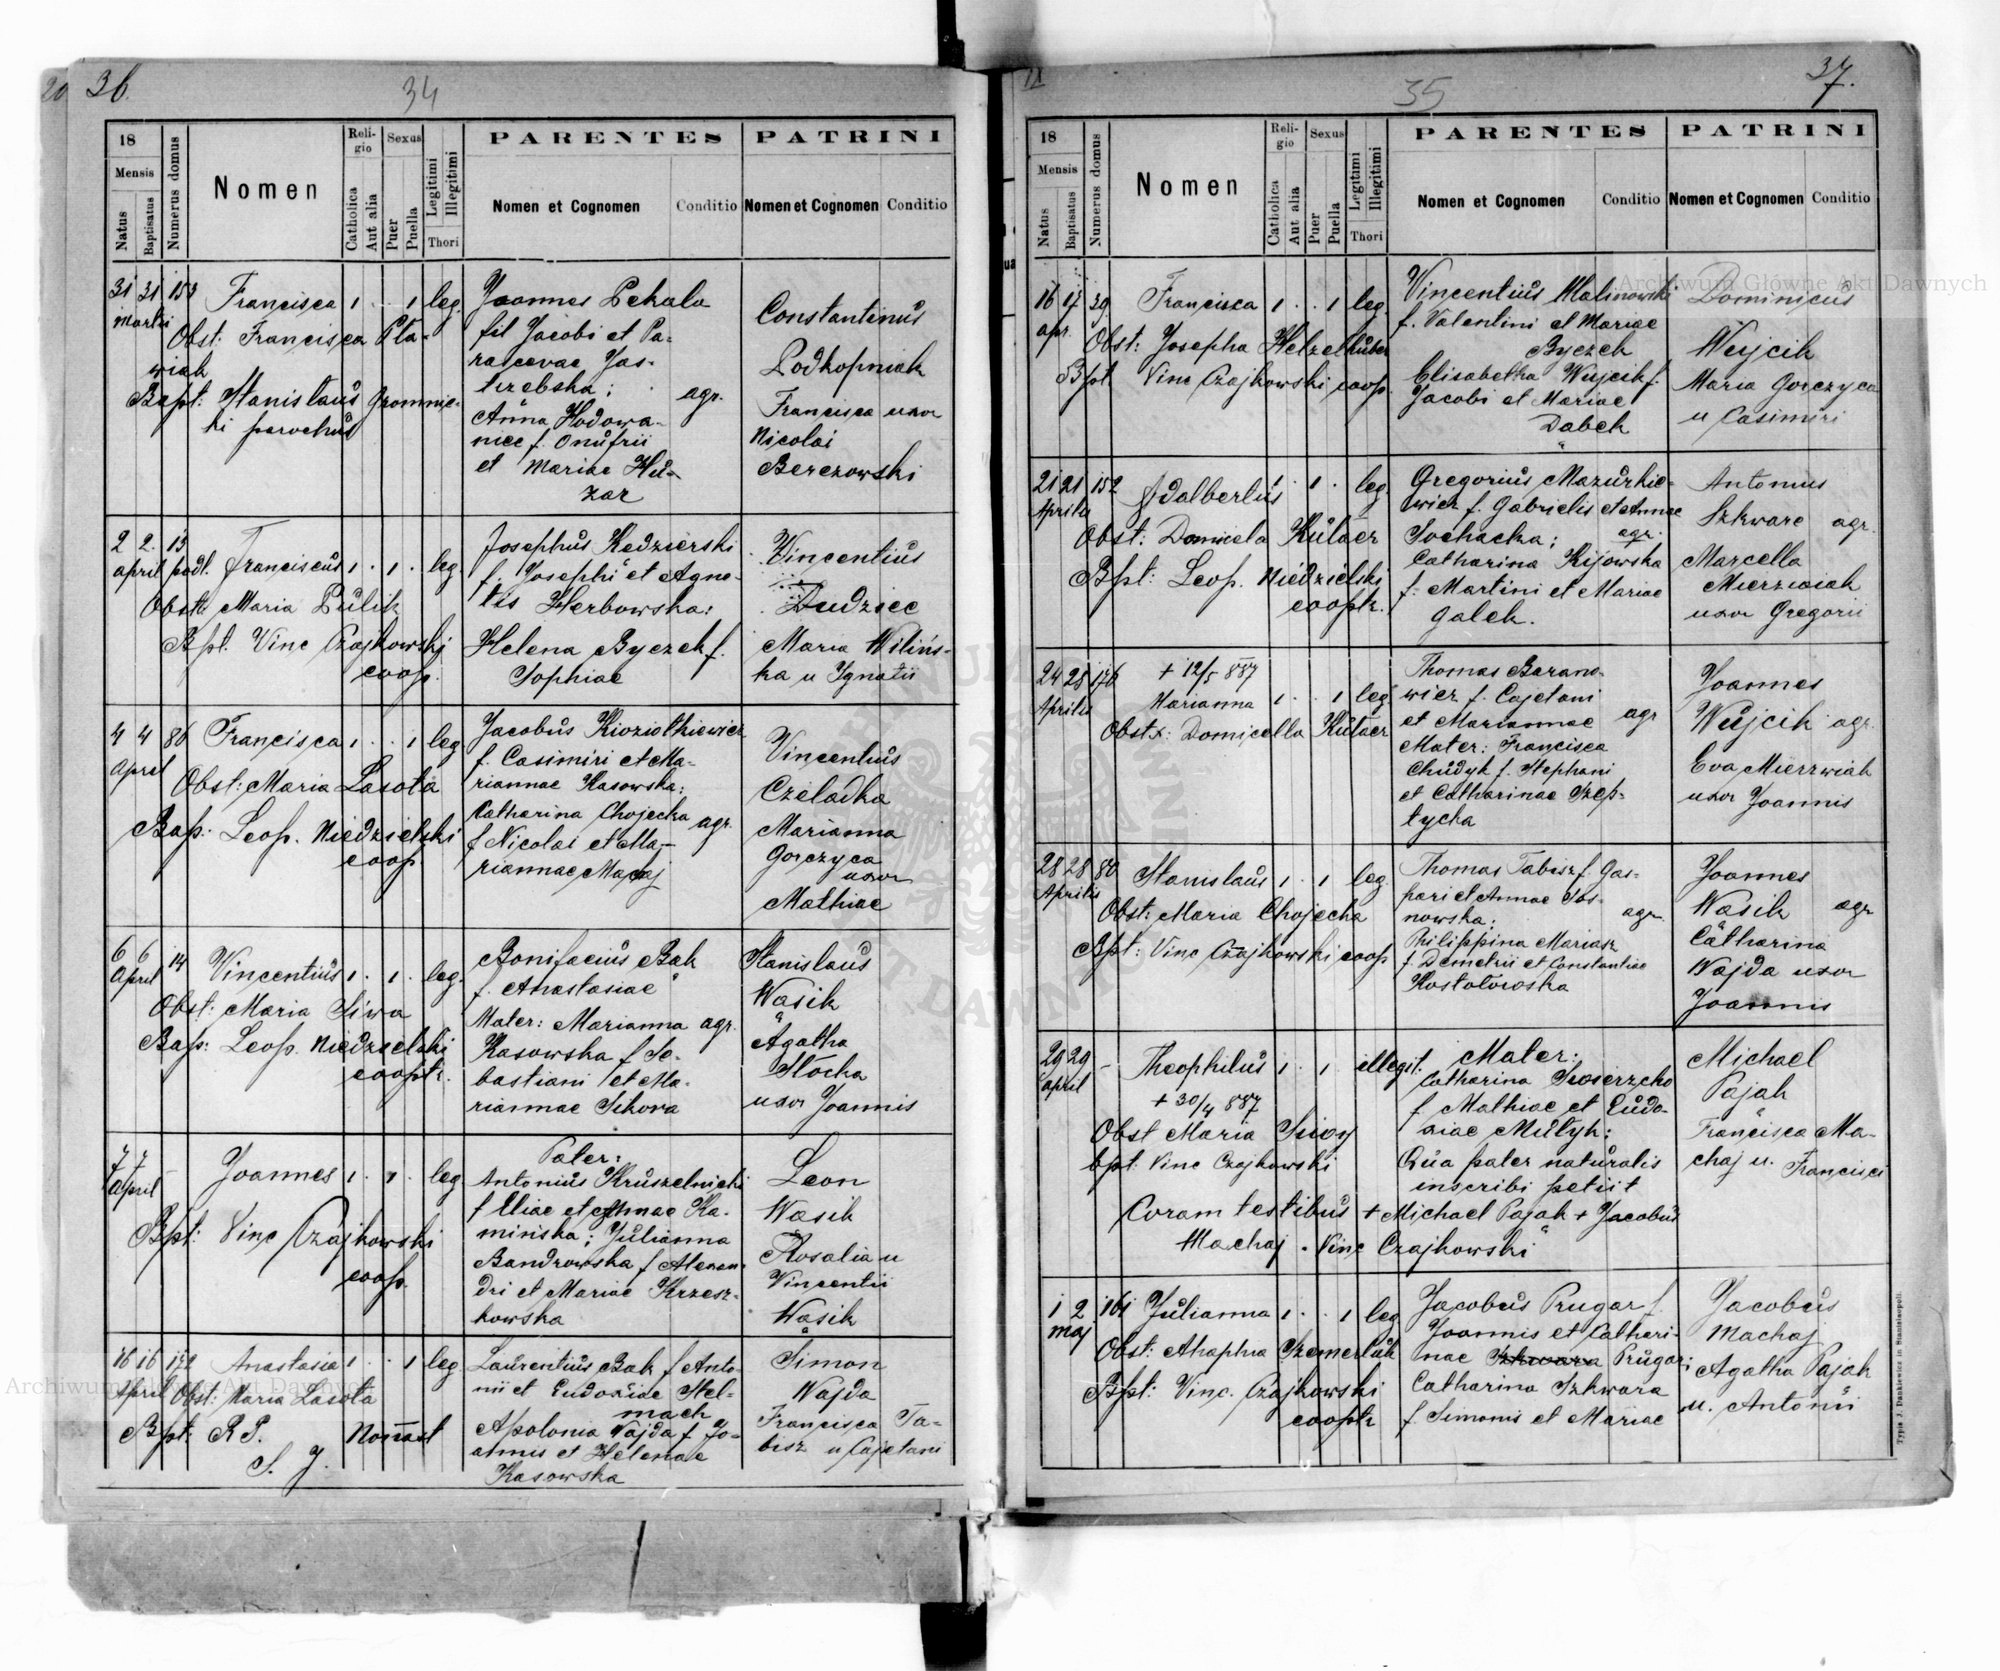 36.
34
18
Mensis
Natus
Baptisatus
Numerus domus
Nomen
Religio
Catholica
Aut alia
Sexus
Puer
Puella
Legitimi
Illegitimi
Thori
PARENTES
Nomen et Cognomen
Conditio
PATRINI
Nomen et Cognomen
Conditio
31 31 153 Francisca 1 . . 1 leg.
Martii
Obst: Francisca Pta-
wiak
Bapt: Stanislaus Gromnic-
ki parochus
Joannes Pekala
fil Jacobi et Pa-
rascevae Jas-
trzebska; agr.
Anna Hodowa-
niec f. Onufrii
et Mariae Hu-
zar
Constantinus
Podkopniak
Francisca uxor
Nicolai
Berezowski
2 2. 13
april podl. Franciscus 1 . 1 . leg
Obst: Maria Pulik
Bpt. Vinc Czajkowski
coop.
Josephus Kedzierski
f. Josephi et Agne-
tis Herbowska:
Helena Byczek f.
Sophiae
Vincentius
Dudziec
Maria Wilins-
ka u Ignatii
4 4 86 Francisca 1 . . 1 leg
april
Obst: Maria Lasota
Bap: Leop. Niedzielski
coop.
Jacobus Kioziolkiewicz
f. Casimiri et Ma-
riannae Kasowska:
Catharina Chojecka agr.
f Nicolai et Ma-
riannae Macaj
Vincentius
Czeladka
Marianna
Gorczyca
uxor
Mathiae
6 6 14 Vincentius 1 . 1 . leg.
April
Obst: Maria Siwa
Bap: Leop. Niedzielski
cooptr.
Bonifacius Bak
f. Anastasiae
Mater: Marianna agr.
Kasowska f Se-
bastiani et Ma-
riannae Sikora
Stanislaus
Wasik
Agatha
Stocka
uxor Joannis
7 7 - Joannes 1 . 1 . leg
april
Bpt: Vinc Czajkowski
coop.
Pater:
Antonius Kruszelnicki
f Eliae et Annae Ka-
minska; Julianna
Bandrowska f Alexan-
dri et Mariae Krzesz-
kowska
Leon
Wasik
Rosalia u
Vincentii
Wasik
16 16 172 Anastasia 1 . . 1 leg
April Obst: Maria Lasota
Bpt: R P. Nonast
S. J.
Laurentius Bak f Anto-
nii et Eudoxiae Stel-
mach
Apolonia Wajda f Jo-
annis et Helenae
Kasowska
Simon
Wajda
Francisca Ta-
bisz u Cajetani
37.
35
18
Mensis
Natus
Baptisatus
Numerus domus
Nomen
Religio
Catholica
Aut alia
Sexus
Puer
Puella
Legitimi
Illegitimi
Thori
PARENTES
Nomen et Cognomen
Conditio
PATRINI
Nomen et Cognomen
Conditio
16 17 39 Francisca 1 . . 1 leg.
apr.
Obst: Josepha Hetzelhuber
Bpt Vinc Czajkowski coop.
Vincentius Malinowski
f. Valentini et Mariae
Byczek
Elisabetha Wujcik f.
Jacobi et Mariae
Dabek
Dominicus
Wujcik
Maria Gorczyca
u Casimiri
21 21 152 Adalbertus 1 . 1 . leg.
Aprilis
Obst: Domicela Kutacz
Bpt: Leop. Niedzielski
cooptr.
Gregorius Mazurkie-
wicz f. Gabrielis et Annae
Sochacka; agr.
Catharina Kijowska
f. Martini et Mariae
Galek.
Antonius
Szkwarc agr.
Marcella
Mierzwiak
uxor Gregorii
24 25 176 + 12/5 887
Aprilis Marianna 1 . . 1 leg.
Obstx: Domicella Kutacz
Thomas Barano-
wicz f. Cajetani
et Mariannae agr
Mater: Francisca
Chudyk f. Stephani
et Catharinae Szep-
tycka
Joannes
Wujcik agr.
Eva Mierzwiak
uxor Joannis
28 28 80 Stanislaus 1 . 1 leg.
Aprilis
Obst: Maria Chojecka
Bpt: Vinc Czajkowski coop
Thomas Tabisz f. Gas-
pari et Annae Sos-
nowska; agr.
Philippina Mariasz
f. Demetrii et Constantiae
Kostotowska
Joannes
Wasik agr
Catharina
Wajda uxor
Joannis
29 29 - Theophilus 1 . 1 . illegit:
april
+ 30/4 887
Obst Maria Siwy
bpt. Vinc Czajkowski
Mater:
Catharina Swierzcho
f Mathiae et Eudo-
xiae Mutyk:
Qua pater naturalis
inscribi petiit
Coram testibus + Michael Pajak + Jacobus
Machaj. Vinc Czajkowski
Michael
Pajak
Francisca Ma-
chaj u. Francisci
1 2 161 Julianna 1 . . 1 leg
maj
Obst: Ahaphia Szemerluk
Bpt: Vinc. Czajkowski
cooptr
Jacobus Prugar f.
Joannis et Cathari-
nae Szkwara Prugar;
Catharina Szkwara
f. Simonis et Mariae
Jacobus
Machaj
Agatha Pajak
u. Antonii
Typis J. Dankiewicz in Stanislaopoli.
Archiwum Główne Akt Dawnych
Archiwum Główne Akt Dawnych